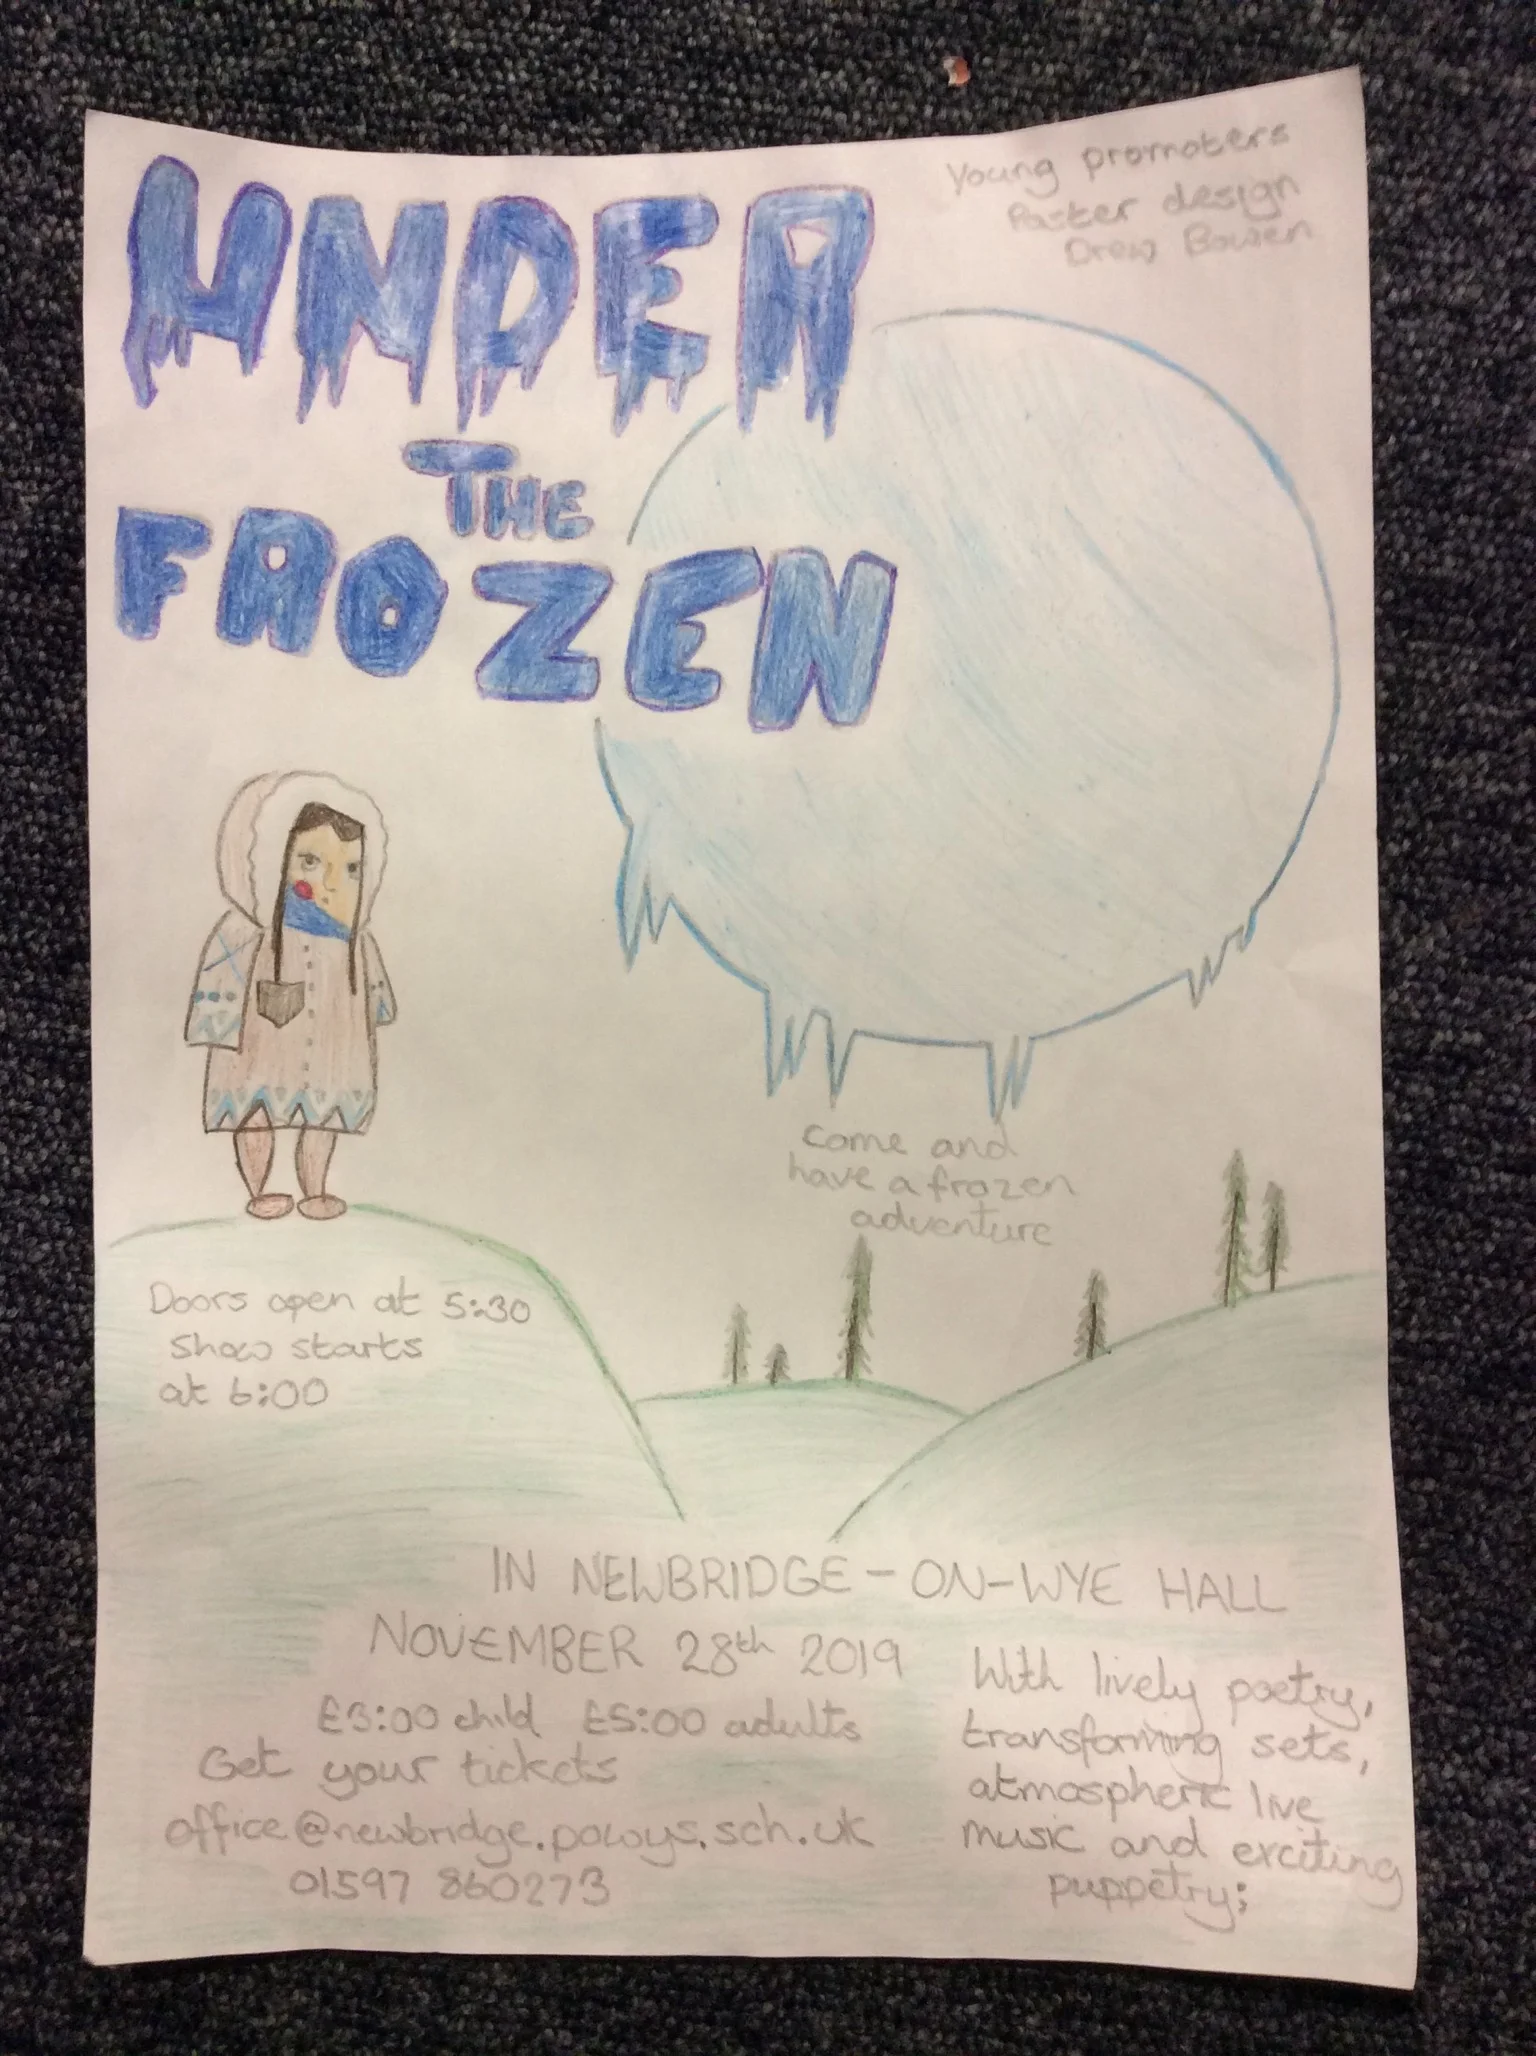 Young promoters
Poster design
Drew Bowen
UNDER
THE
FROZEN
Come and
have a frozen
adventure
Doors open at 5:30
Show starts
at 6:00
IN NEWBRIDGE-ON-WYE HALL
NOVEMBER 28th 2019
£3:00 child £5:00 adults
Get your tickets
office@newbridge.powys.sch.uk
01597 860273
With lively poetry,
transforming sets,
atmospheric live
music and exciting
puppetry;